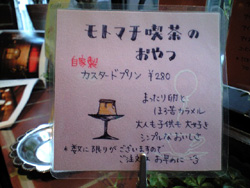 モトマチ喫茶の
おやつ
自家製
カスタードプリン ¥280
まったり卵と
ほろ苦カラメル
大人も子供も大好き
シンプルなおいしさ
*数に限りがございますので
ご注文はお早めに